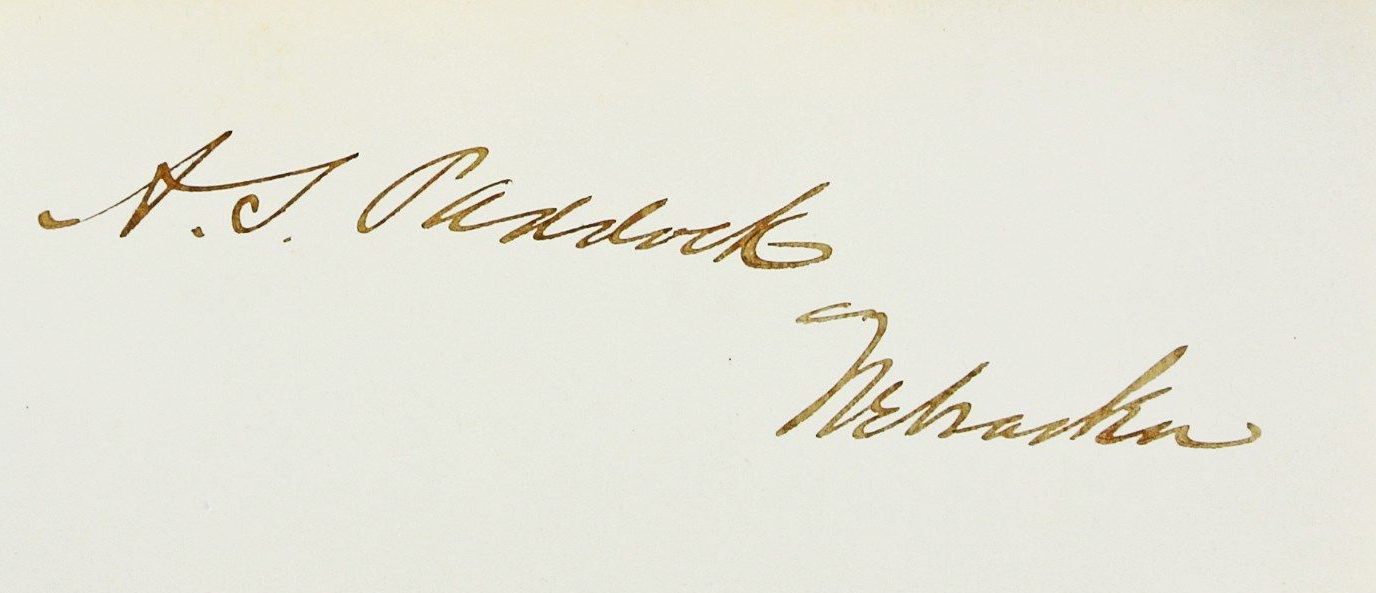 A. S. Paddock
Nebraska